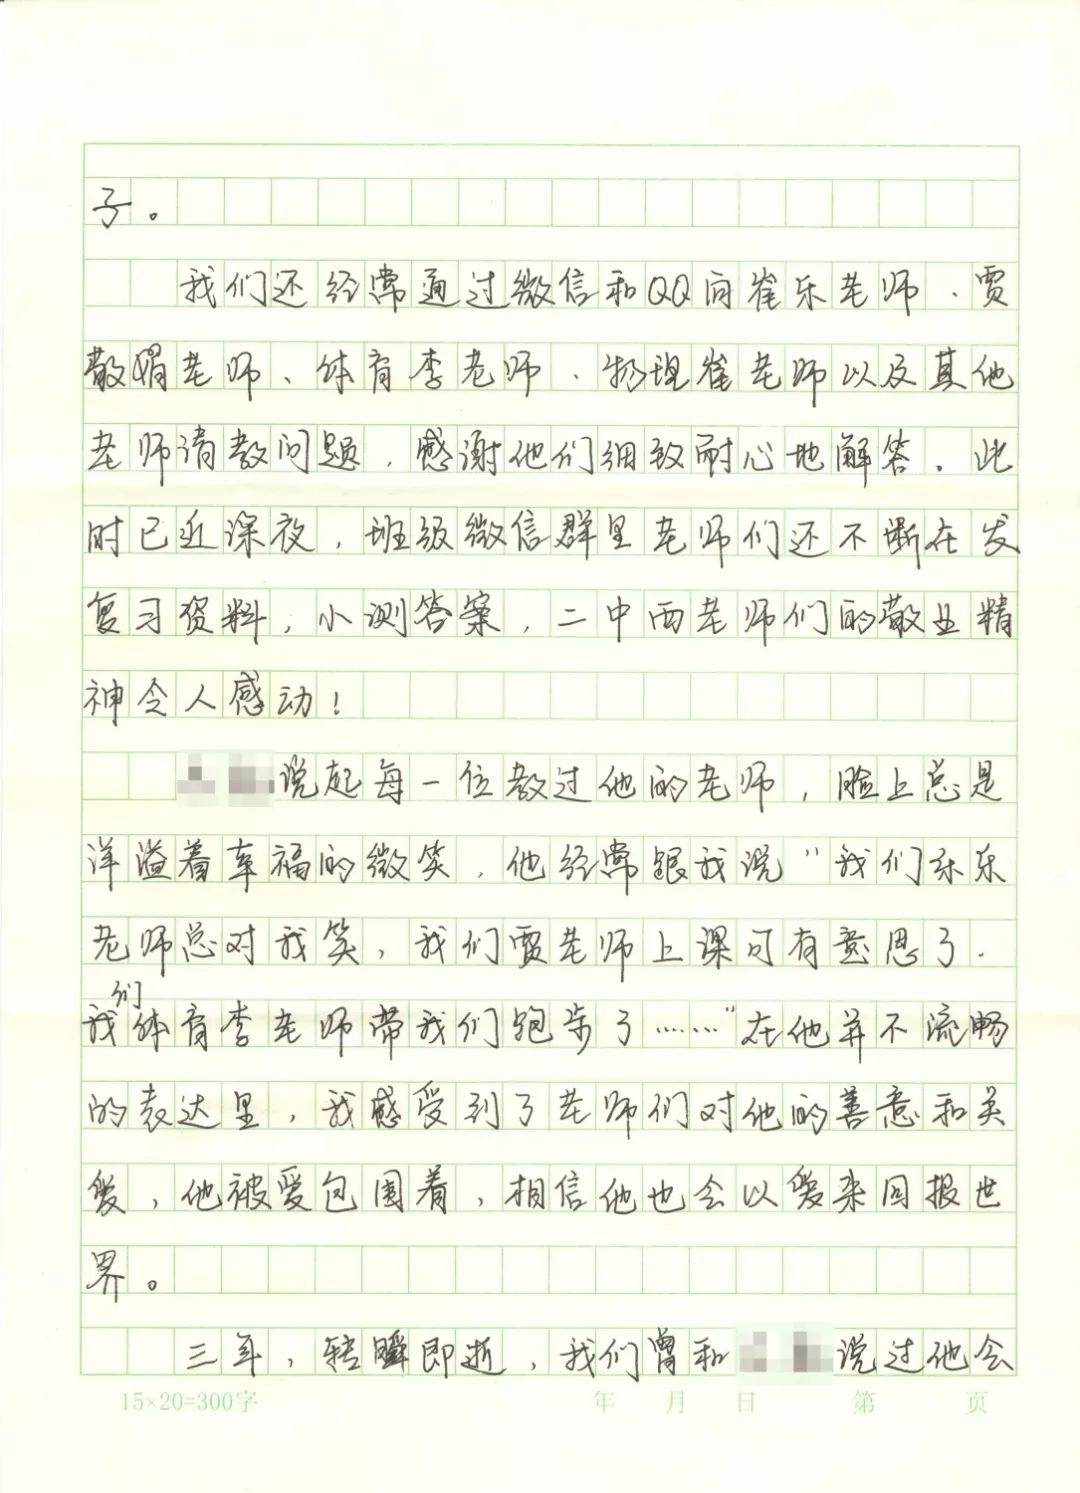 子。
我们还经常通过微信和QQ向崔乐老师、贾
敬娟老师、体育李老师、物理崔老师以及其他
老师请教问题，感谢他们细致耐心地解答。此
时已近深夜，班级微信群里老师们还不断在发
复习资料，小测答案，二中西老师们的敬业精
神令人感动！
说起每一位教过他的老师，脸上总是
洋溢着幸福的微笑，他经常跟我说“我们乐乐
老师总对我笑，我们贾老师上课可有意思了.
我们体育李老师带我们跑步了……”在他并不流畅
的表达里，我感受到了老师们对他的善意和关
爱，他被爱包围着，相信他也会以爱来回报世
界。
三年，转瞬即逝，我们曾和 说过他会
15×20=300字 年 月 日 第 页